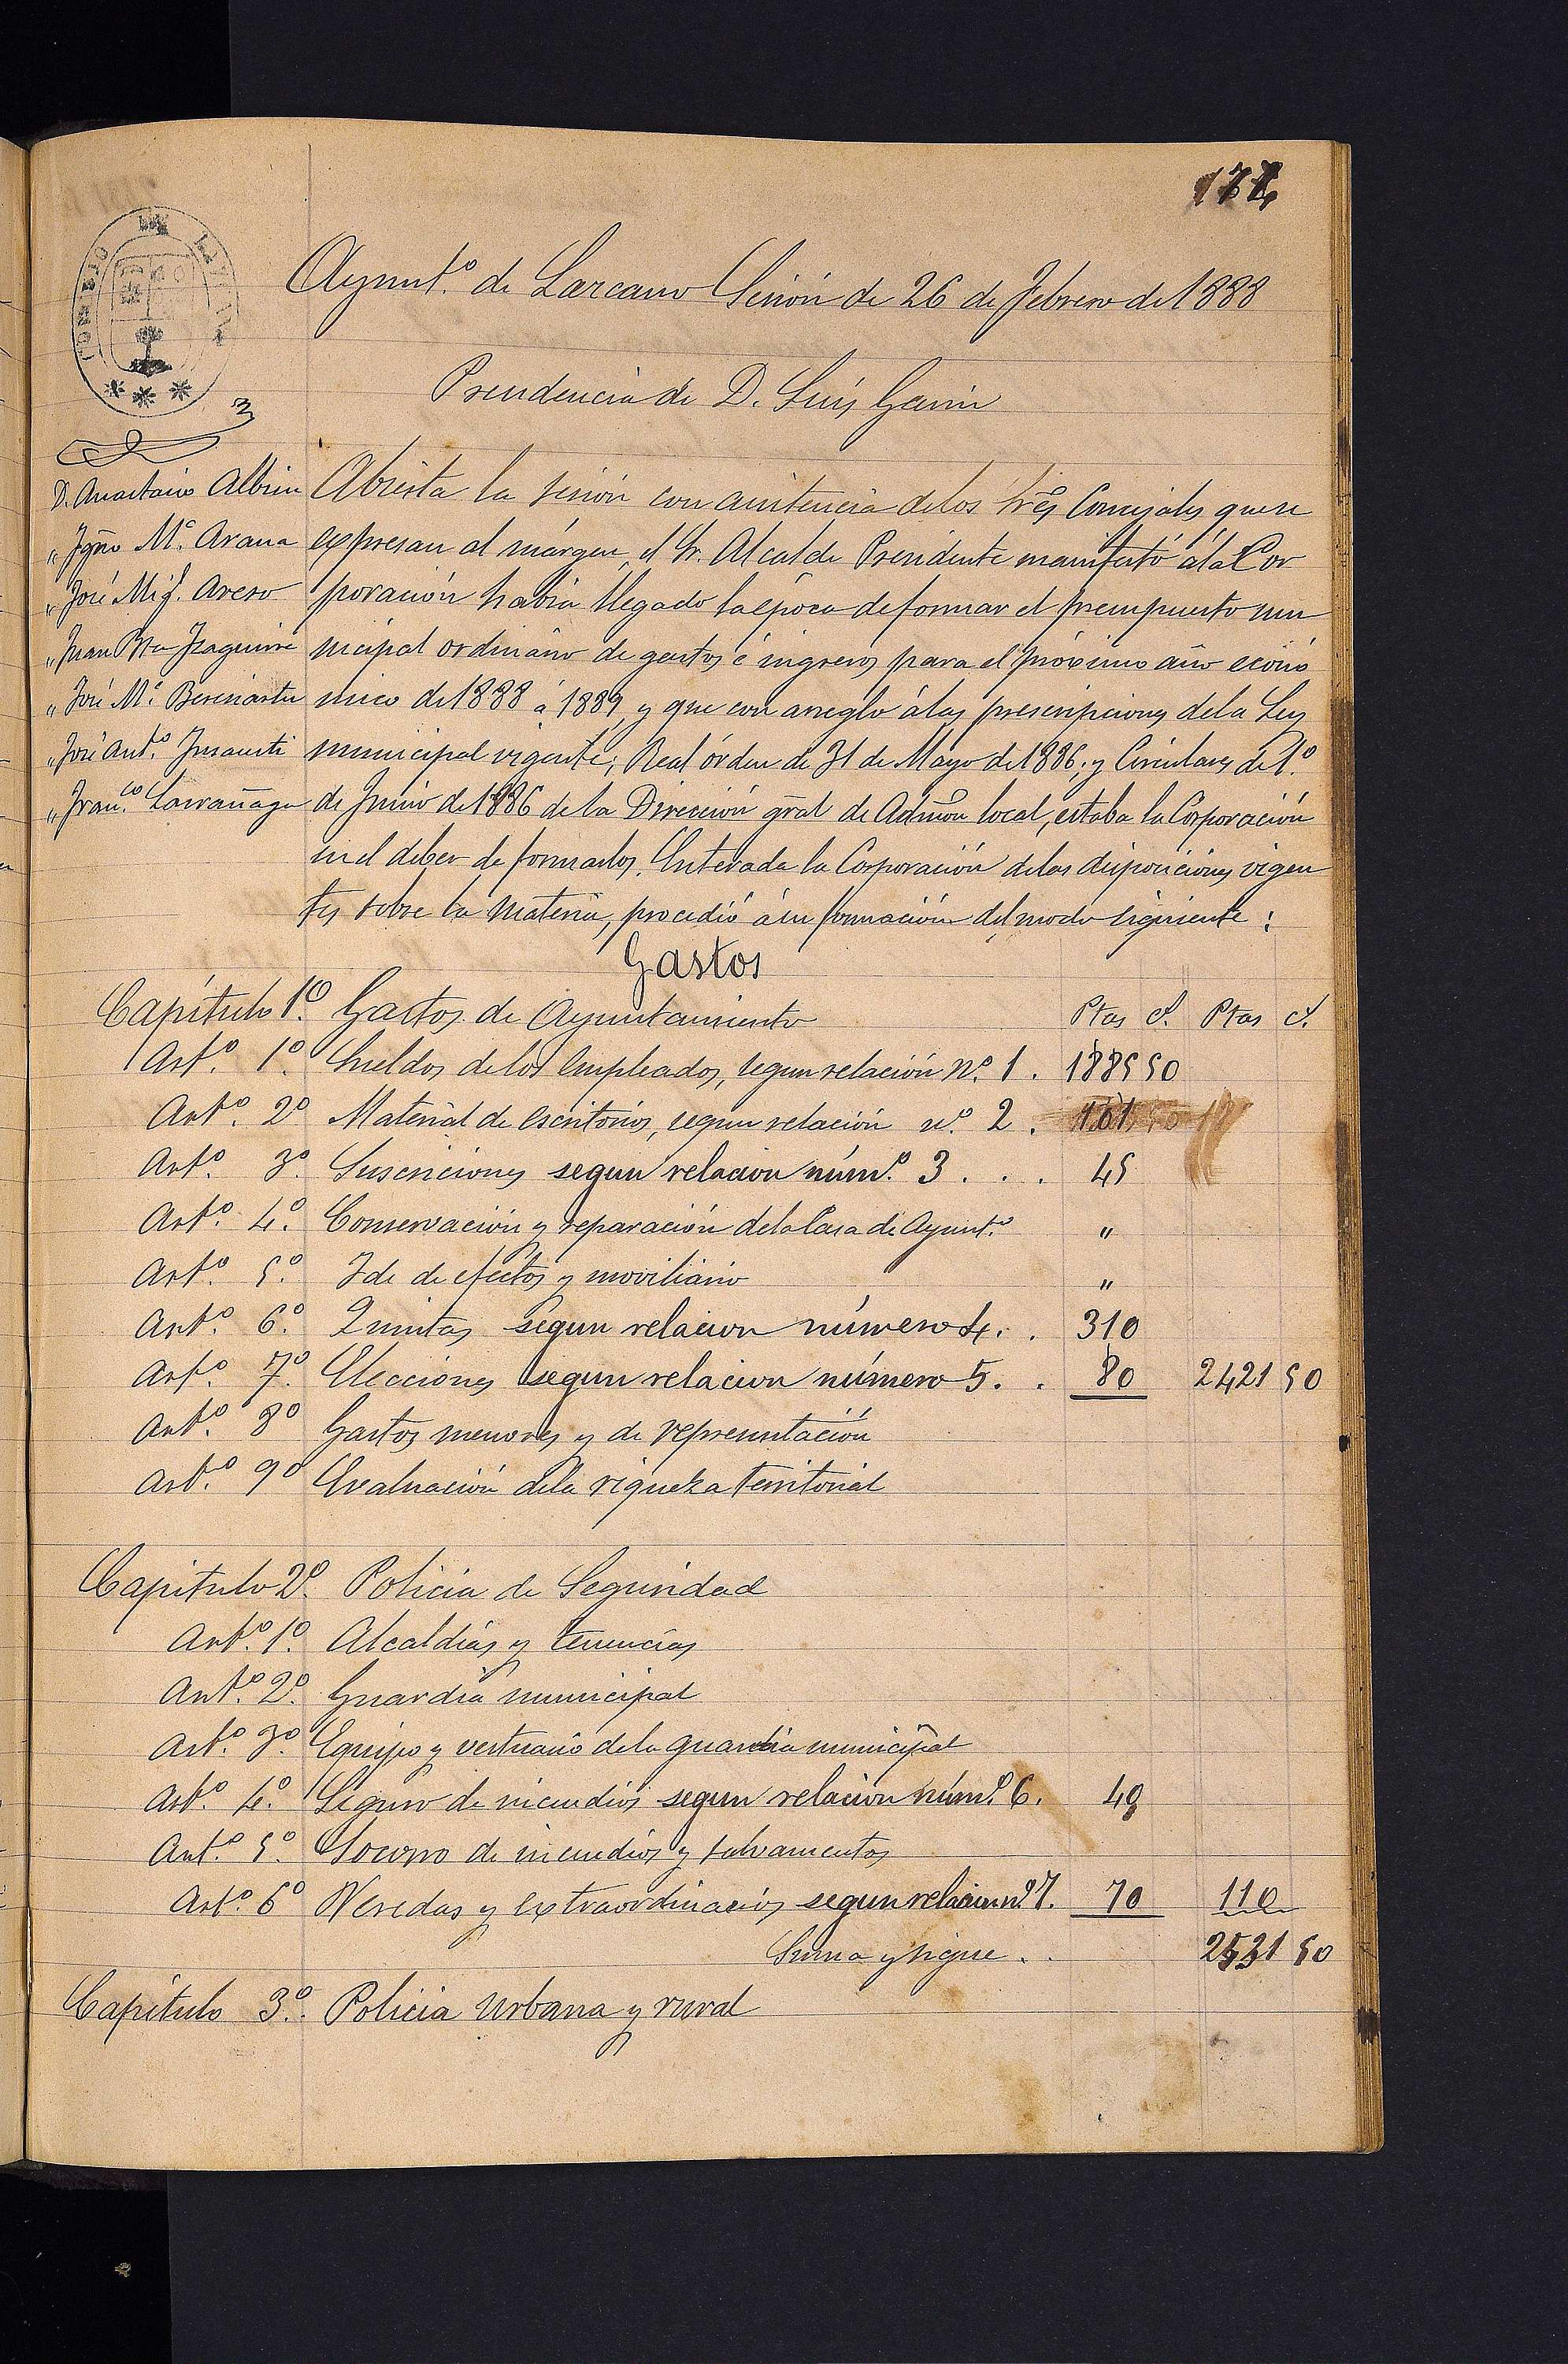 Ayunt.º de Lazcano Sesión de 26 de Febrero de 1888
Presidencia de D. Luís Garin
D. Anastasio Albisu
" Ygn.º M.ª Arana
" José Mig.l Areso
" Juan Bta Izaguirre
" José M.ª Beriniartu
" José Ant.º Insausti
" Fran.co Larrañaga
Abierta la sesión con asistencia de los Srēs Concejales que se
expresan al márgen, el Sr. Alcalde Presidente manifestó á la Cor
poración habia llegado la época de formar el presupuesto mu
nicipal ordinario de gastos é ingresos para el próximo año econó
mico de 1888 á 1889, y que con arreglo á las prescripciones de la Ley
municipal vigente, Real órden de 31 de Mayo de 1886, y Circulares de 1.º
de Junio de 1886 de la Dirección gral de Admōn local, estaba la Corporación
en el deber de formarlos. Enterada la Corporación de las disposiciones vigen
tes sobre la materia, procedió á su formación del modo siguiente:
Gastos
Capítulo 1.º Gastos de Ayuntamiento Ptas c.s Ptas c.s
Art.º 1.º Sueldos de los empleados, segun relación N.º 1. 1885 50
Art.º 2.º Material de escritorio, segun relación n.º 2. 101
Art.º 3.º Suscriciones segun relacion núm.º 3 . . . 45
Art.º 4.º Conservación y reparación de la Casa de Ayunt.º "
Art.º 5.º Id de efectos y moviliario "
Art.º 6.º Quintas segun relacion número 4. . 310
Art.º 7.º Elecciones segun relacion número 5. . 80 2421 50
Art.º 8.º Gastos menores y de representación
Art.º 9.º Evaluación de la riqueza territorial
Capitulo 2.º Policia de Seguridad
Art.º 1.º Alcaldías y tenencias
Art.º 2.º Guardia municipal
Art.º 3.º Equipo y vestuario de la guardia municipal
Art.º 4.º Seguro de incendios segun relacion núm.º 6. 40
Art.º 5.º Socorro de incendios y salvamentos
Art.º 6.º Veredas y extraordinarios segun relacion n.º 7. 70 110
Suma y sigue . . 2531 50
Capítulo 3.º Policia Urbana y rural